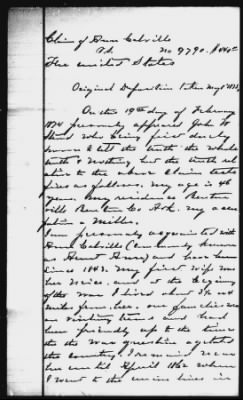 Claim of Ann Colville
vs. No 9790. $
The united States
Original Deposition taken
On the 19th day of February
1874 personaly appeared John W
who being first duely
sworn to tell the truth the whole
truth & nothing but the truth rel
ative to the above Claim testi
fies as follows. my age is 46
years. my residence Benton
ville Benton Co Ark. my occu
pation a Miller.
I am personaly acquainted with
Ann Colville (commonly known
as Aunt Ann) and have been
since 1843. My first wife was
her Niece. and at the begining
of the War I lived about
miles from her & our families were
on visiting terms and had
been friendly up to the time
the the war question agitated
the country. I remained near
her until April 1862 when
I went to the union lines in